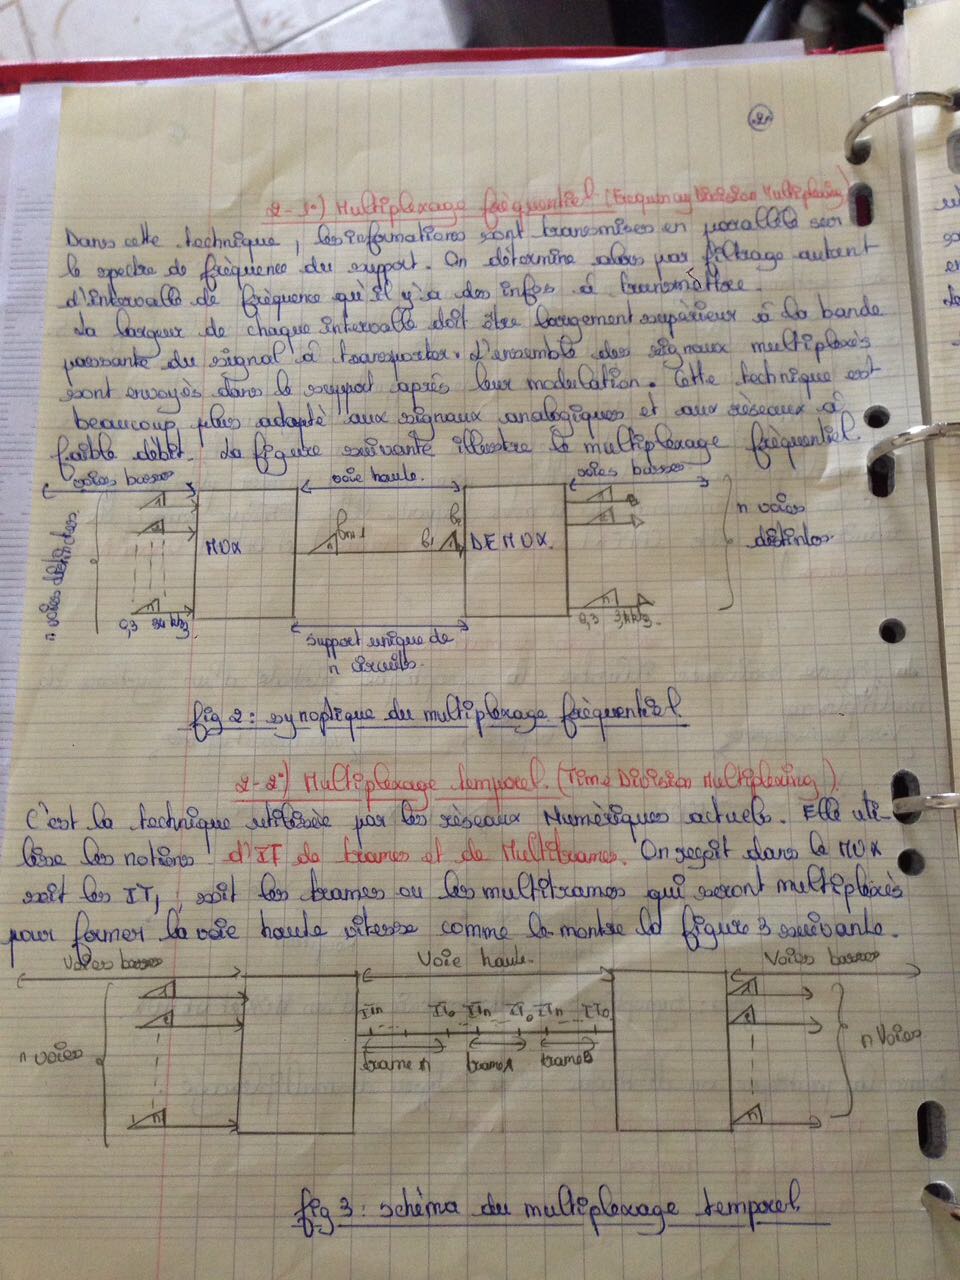 2
2-1°) Multiplexage fréquentiel (Frequency Division Multiplexing)
Dans cette technique, les informations sont transmises en parallèle sur
le spectre de fréquence du support. On détermine alors par filtrage autant
d'intervalle de fréquence qu'il y'a des infos à transmettre.
La largeur de chaque intervalle doit être largement supérieur à la bande
passante du signal à transporter. L'ensemble des signaux multiplexés
sont envoyés dans le support après leur modulation. Cette technique est
beaucoup plus adapté aux signaux analogiques et aux réseaux à
faible débit. La figure suivante illustre le multiplexage fréquentiel
voies basses voie haute. voies basses
n voies distinctes
MUX
DEMUX.
n voies
distinctes.
1
2
n
n
1
1
2
n
0,3
0,3
support unique de
n circuits.
fig 2 : synoptique du multiplexage fréquentiel
2-2°) Multiplexage temporel. (Time Division Multiplexing).
C'est la technique utilisée par les réseaux Numériques actuels. Elle uti-
lise les notions d'IT de trames et de Multitrames. On reçoit dans le MUX
soit les IT, soit les trames ou les multitrames qui seront multiplexés
pour former la voie haute vitesse comme le montre la figure 3 suivante.
Voies basses Voie haute. Voies basses
n voies
1
2
n
ITn IT0 ITn IT0 ITn IT0
trame n trame trame
1
2
n
n Voies
fig 3 : schéma du multiplexage temporel.